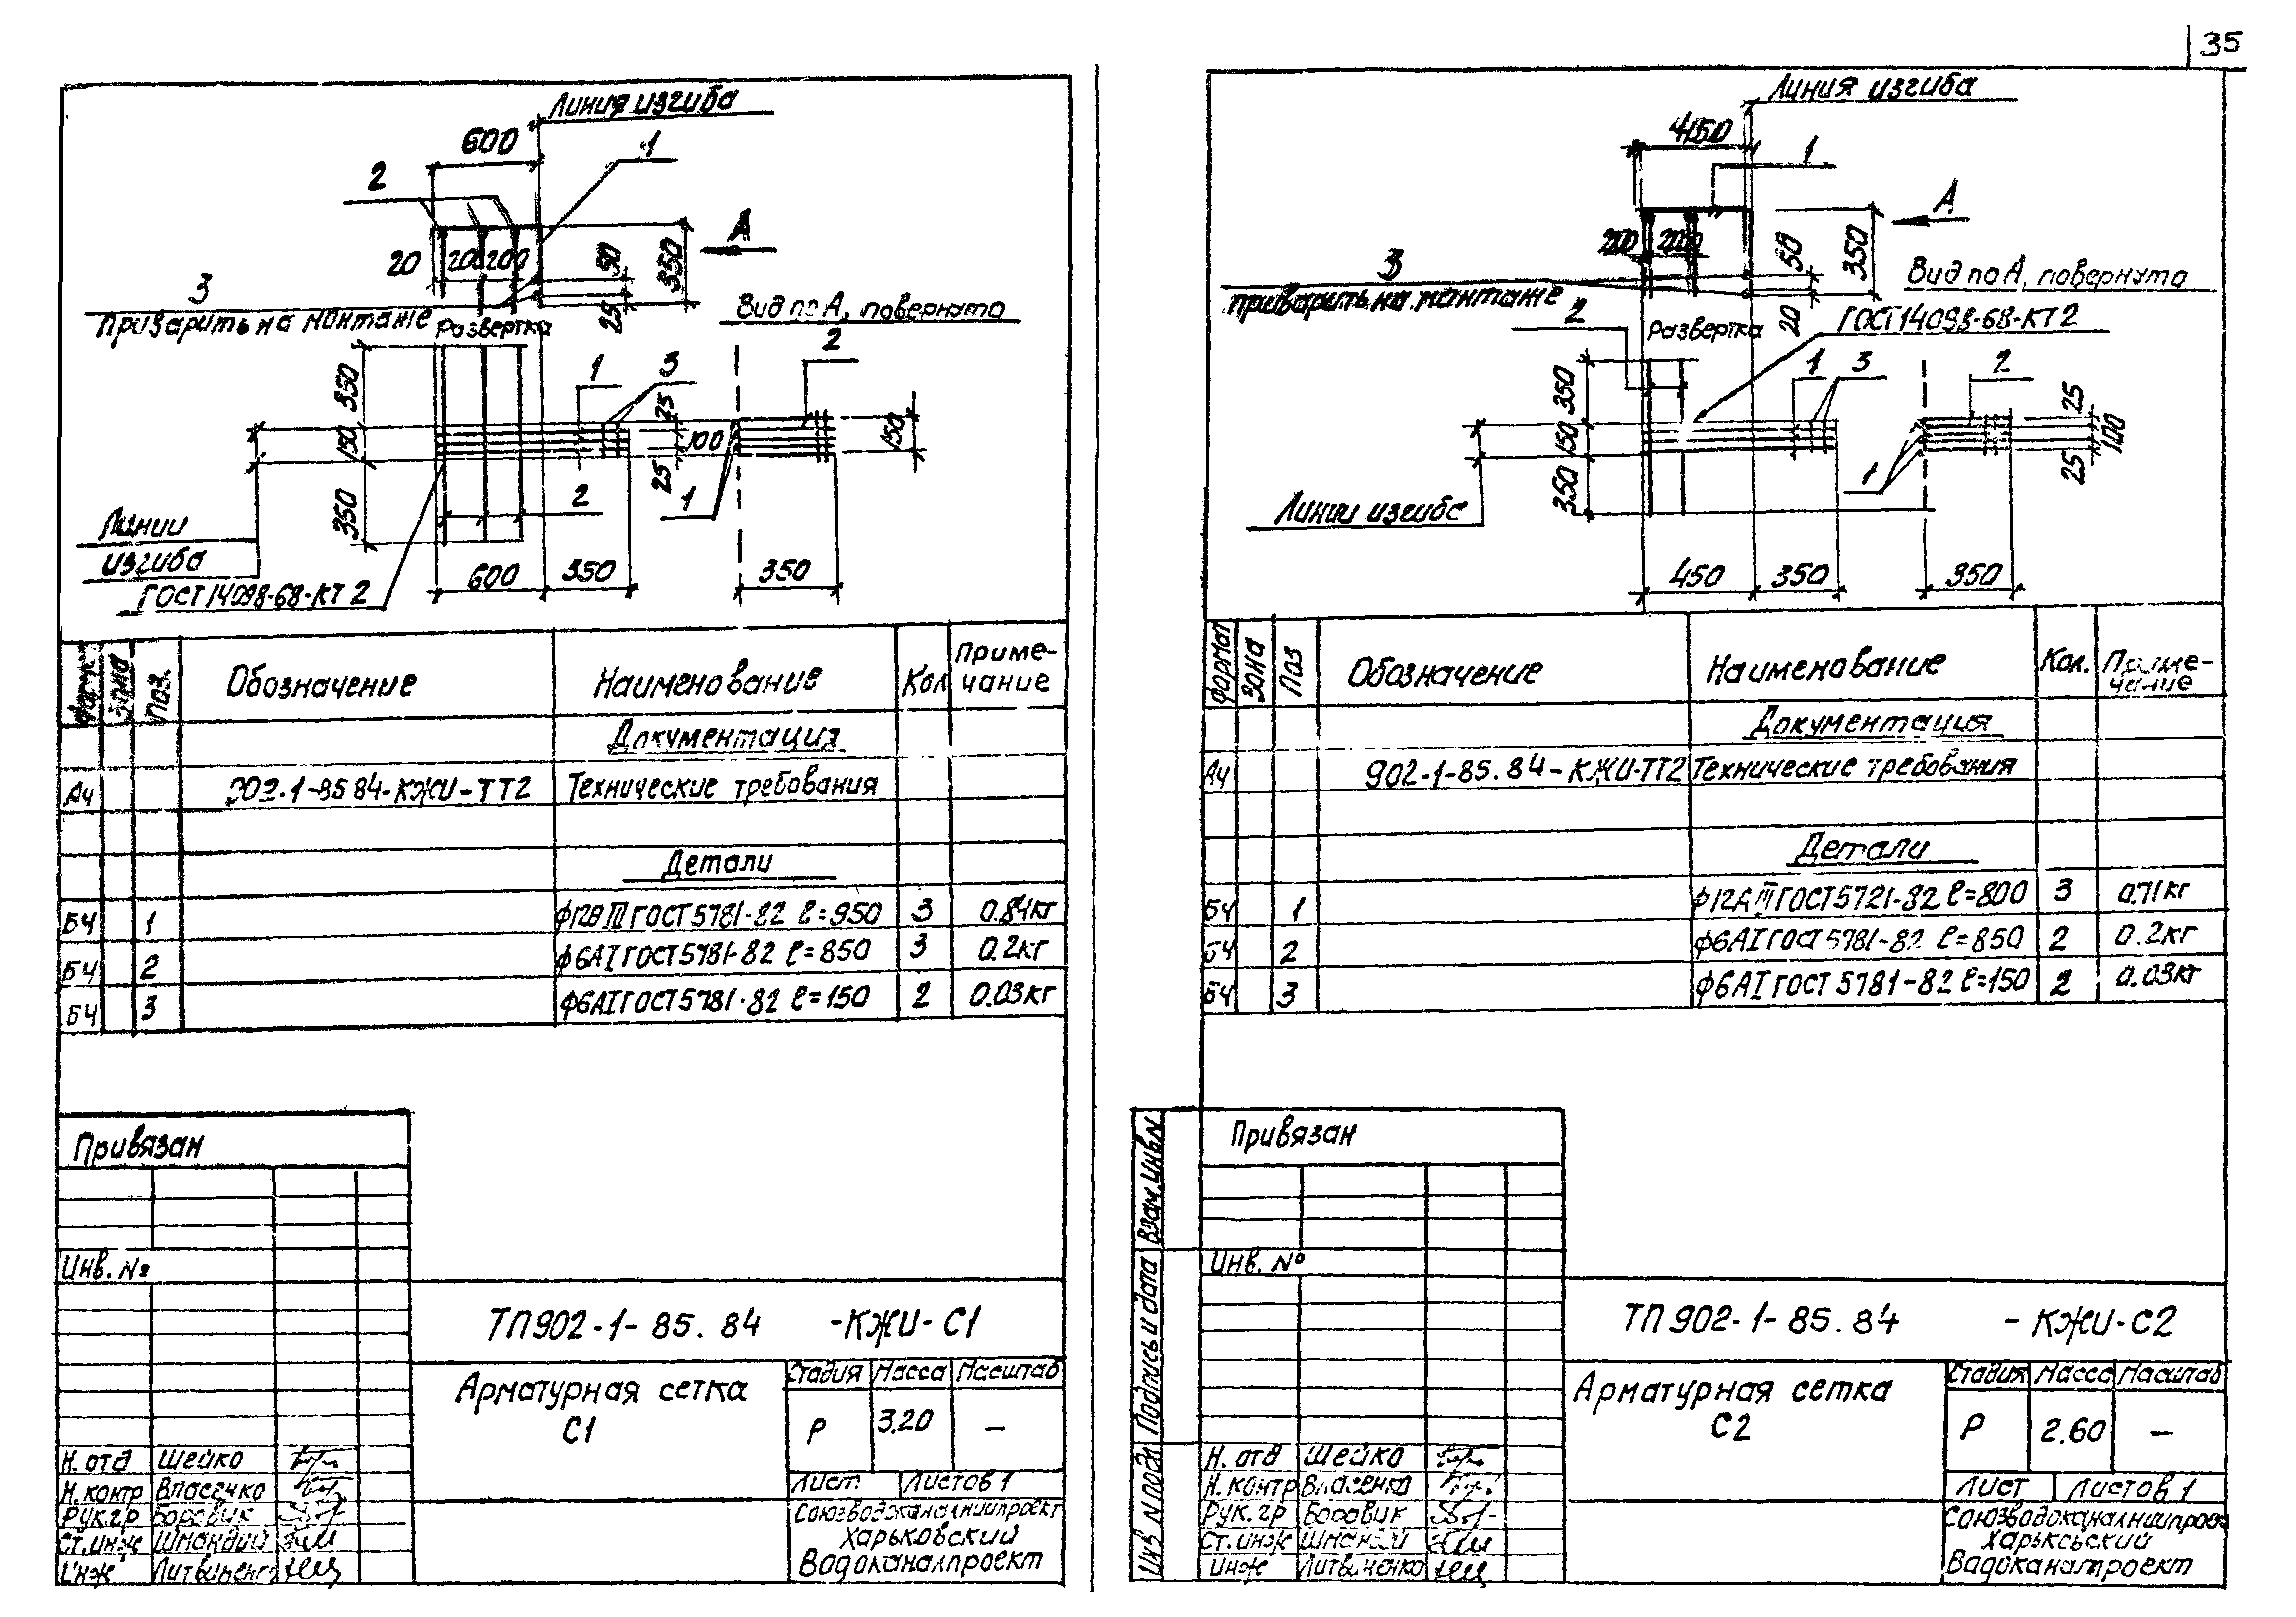 35
Линия изгиба
600
1
2
А
20 200 200
50
350
25
3
Приварить на монтаже
Развертка
Вид по А, повернуто
350
150
350
1 3
25
100
25
2
150
1
2
Линии
изгиба
600 350 350
ГОСТ 14098-68-КТ2
Поз. Обозначение Наименование Кол Приме-
чание
Документация
А4 902-1-85.84-КЖИ-ТТ2 Технические требования
Детали
БЧ 1 ГОСТ 5781-82 ℓ=950 3 0.84кг
БЧ 2 ф6АI ГОСТ 5781-82 ℓ=850 3 0.2кг
БЧ 3 ф6АI ГОСТ 5781-82 ℓ=150 2 0.03кг
Привязан
Инв. №
ТП 902-1-85.84 -КЖИ-С1
Арматурная сетка
С1
Стадия Масса Масштаб
Р 3.20 —
Лист Листов 1
Н. отд Шейко
Н. контр Власенко
Рук. гр Боровик
Ст. инж
Инж Литвиненко
Союзводоканалниипроект
Харьковский
Водоканалпроект
Линия изгиба
450
1
А
50
350
20
3
Приварить на монтаже
Вид по А, повернуто
2
Развертка
ГОСТ 14098-68-КТ2
350
150
350
1 3
2
25
100
25
1
Линии изгиба
450 350 350
Формат Зона Поз Обозначение Наименование Кол. Приме-
чание
Документация
А4 902-1-85.84-КЖИ-ТТ2 Технические требования
Детали
БЧ 1 ф12АIII ГОСТ 5721-82 ℓ=800 3 0.71кг
БЧ 2 ф6АI ГОСТ 5781-82 ℓ=850 2 0.2кг
БЧ 3 ф6АI ГОСТ 5781-82 ℓ=150 2 0.03кг
Привязан
Инв. №
Взам. инв. N
Подпись и дата
Инв N подл
ТП 902-1-85.84 - КЖИ-С2
Арматурная сетка
С2
Стадия Масса Масштаб
Р 2.60 —
Лист Листов 1
Н. отд Шейко
Н. контр Власенко
Рук. гр Боровик
Ст. инж
Инж Литвиненко
Союзводоканалниипроект
Харьковский
Водоканалпроект